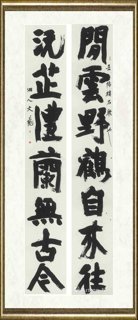 閒雲野鶴自來往
沅芷澧蘭無古今